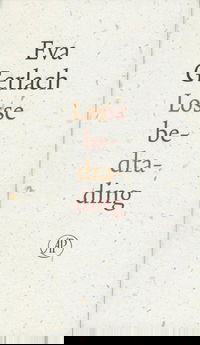 Eva
Gerlach
Losse
be-
dra-
ding
AP